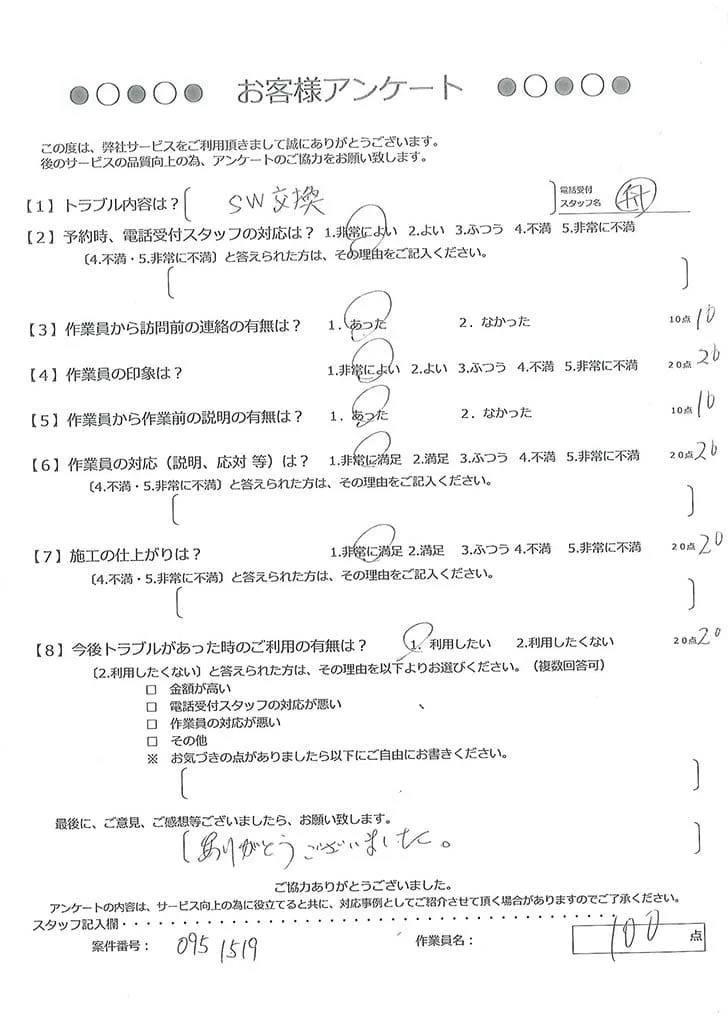 ●○●○● お客様アンケート ●○●○●
この度は、弊社サービスをご利用頂きまして誠にありがとうございます。
後のサービスの品質向上の為、アンケートのご協力をお願い致します。
【1】トラブル内容は？〔 SW交換 〕 電話受付スタッフ名
【2】予約時、電話受付スタッフの対応は？ 1.非常によい 2.よい 3.ふつう 4.不満 5.非常に不満
〔4.不満・5.非常に不満〕と答えられた方は、その理由をご記入ください。
〔 〕
【3】作業員から訪問前の連絡の有無は？ 1．あった 2．なかった 10点 10
【4】作業員の印象は？ 1.非常によい 2.よい 3.ふつう 4.不満 5.非常に不満 20点 20
【5】作業員から作業前の説明の有無は？ 1．あった 2．なかった 10点 10
【6】作業員の対応（説明、応対 等）は？ 1.非常に満足 2.満足 3.ふつう 4.不満 5.非常に不満 20点 20
〔4.不満・5.非常に不満〕と答えられた方は、その理由をご記入ください。
〔 〕
【7】施工の仕上がりは？ 1.非常に満足 2.満足 3.ふつう 4.不満 5.非常に不満 20点 20
〔4.不満・5.非常に不満〕と答えられた方は、その理由をご記入ください。
〔 〕
【8】今後トラブルがあった時のご利用の有無は？ 1. 利用したい 2.利用したくない 20点 20
〔2.利用したくない〕と答えられた方は、その理由を以下よりお選びください。（複数回答可）
□ 金額が高い
□ 電話受付スタッフの対応が悪い
□ 作業員の対応が悪い
□ その他
※ お気づきの点がありましたら以下にご自由にお書きください。
〔 〕
最後に、ご意見、ご感想等ございましたら、お願い致します。
〔 ありがとうございました。 〕
ご協力ありがとうございました。
アンケートの内容は、サービス向上の為に役立てると共に、対応事例としてご紹介させて頂く場合がありますのでご了承ください。
スタッフ記入欄・・・・・・・・・・・・・・・・・・・・・・・・・・・・・・・・・・・・
案件番号： 095 1519 作業員名： 100 点